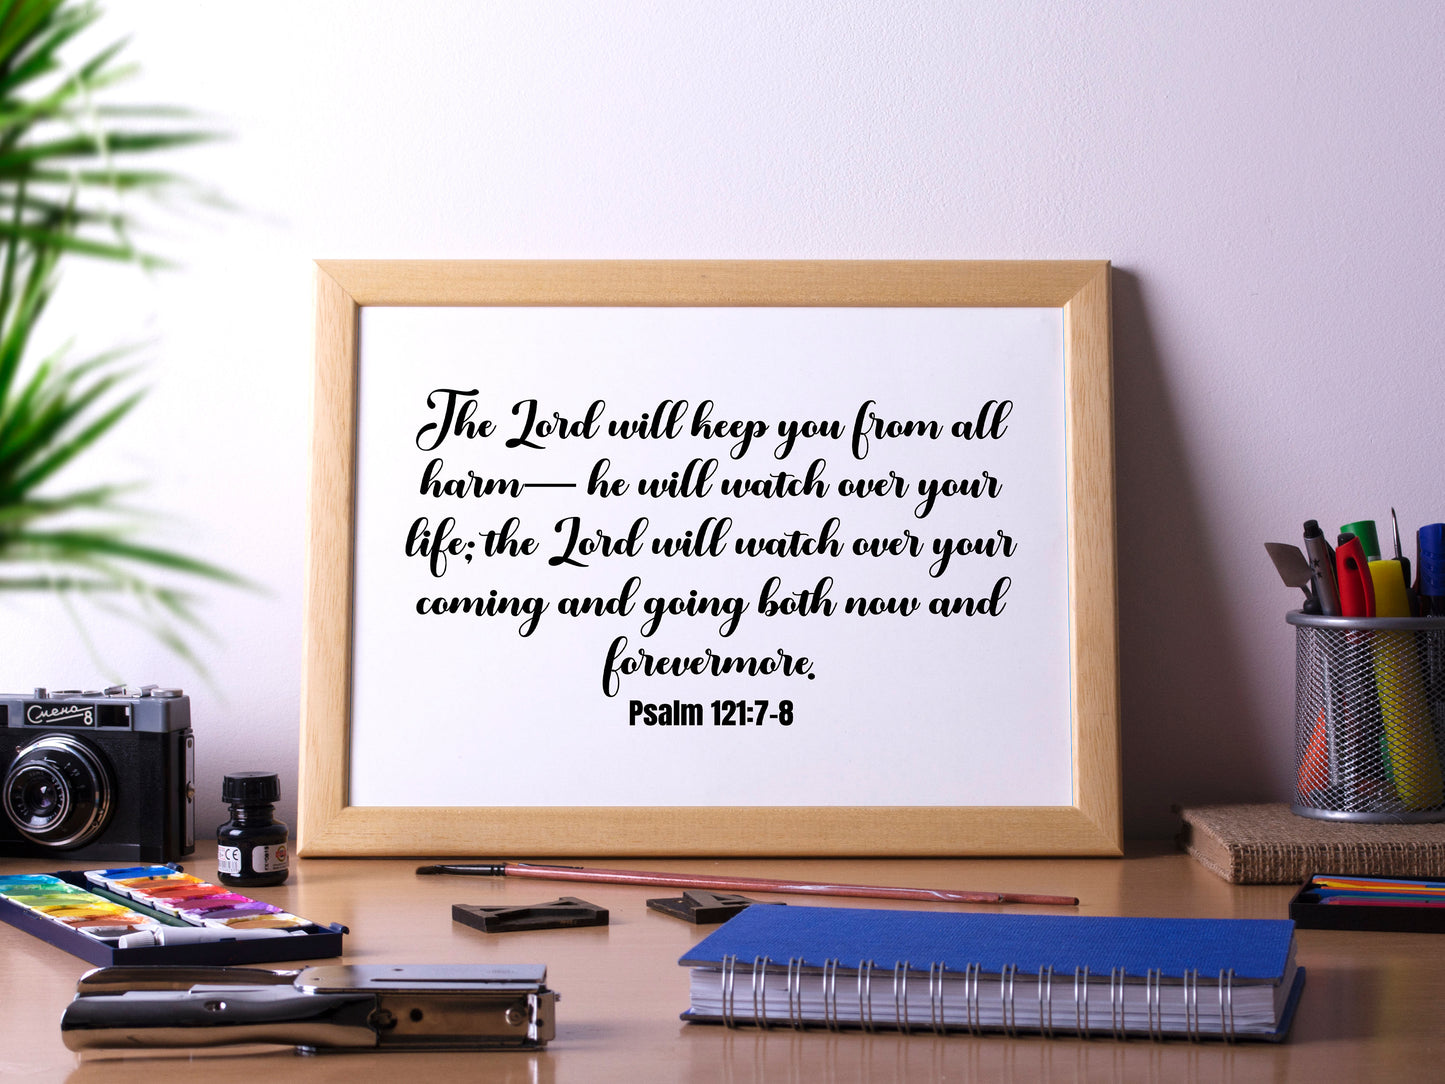 The Lord will keep you from all
harm— he will watch over your
life; the Lord will watch over your
coming and going both now and
forevermore.
Psalm 121:7-8
Смена 8
CE